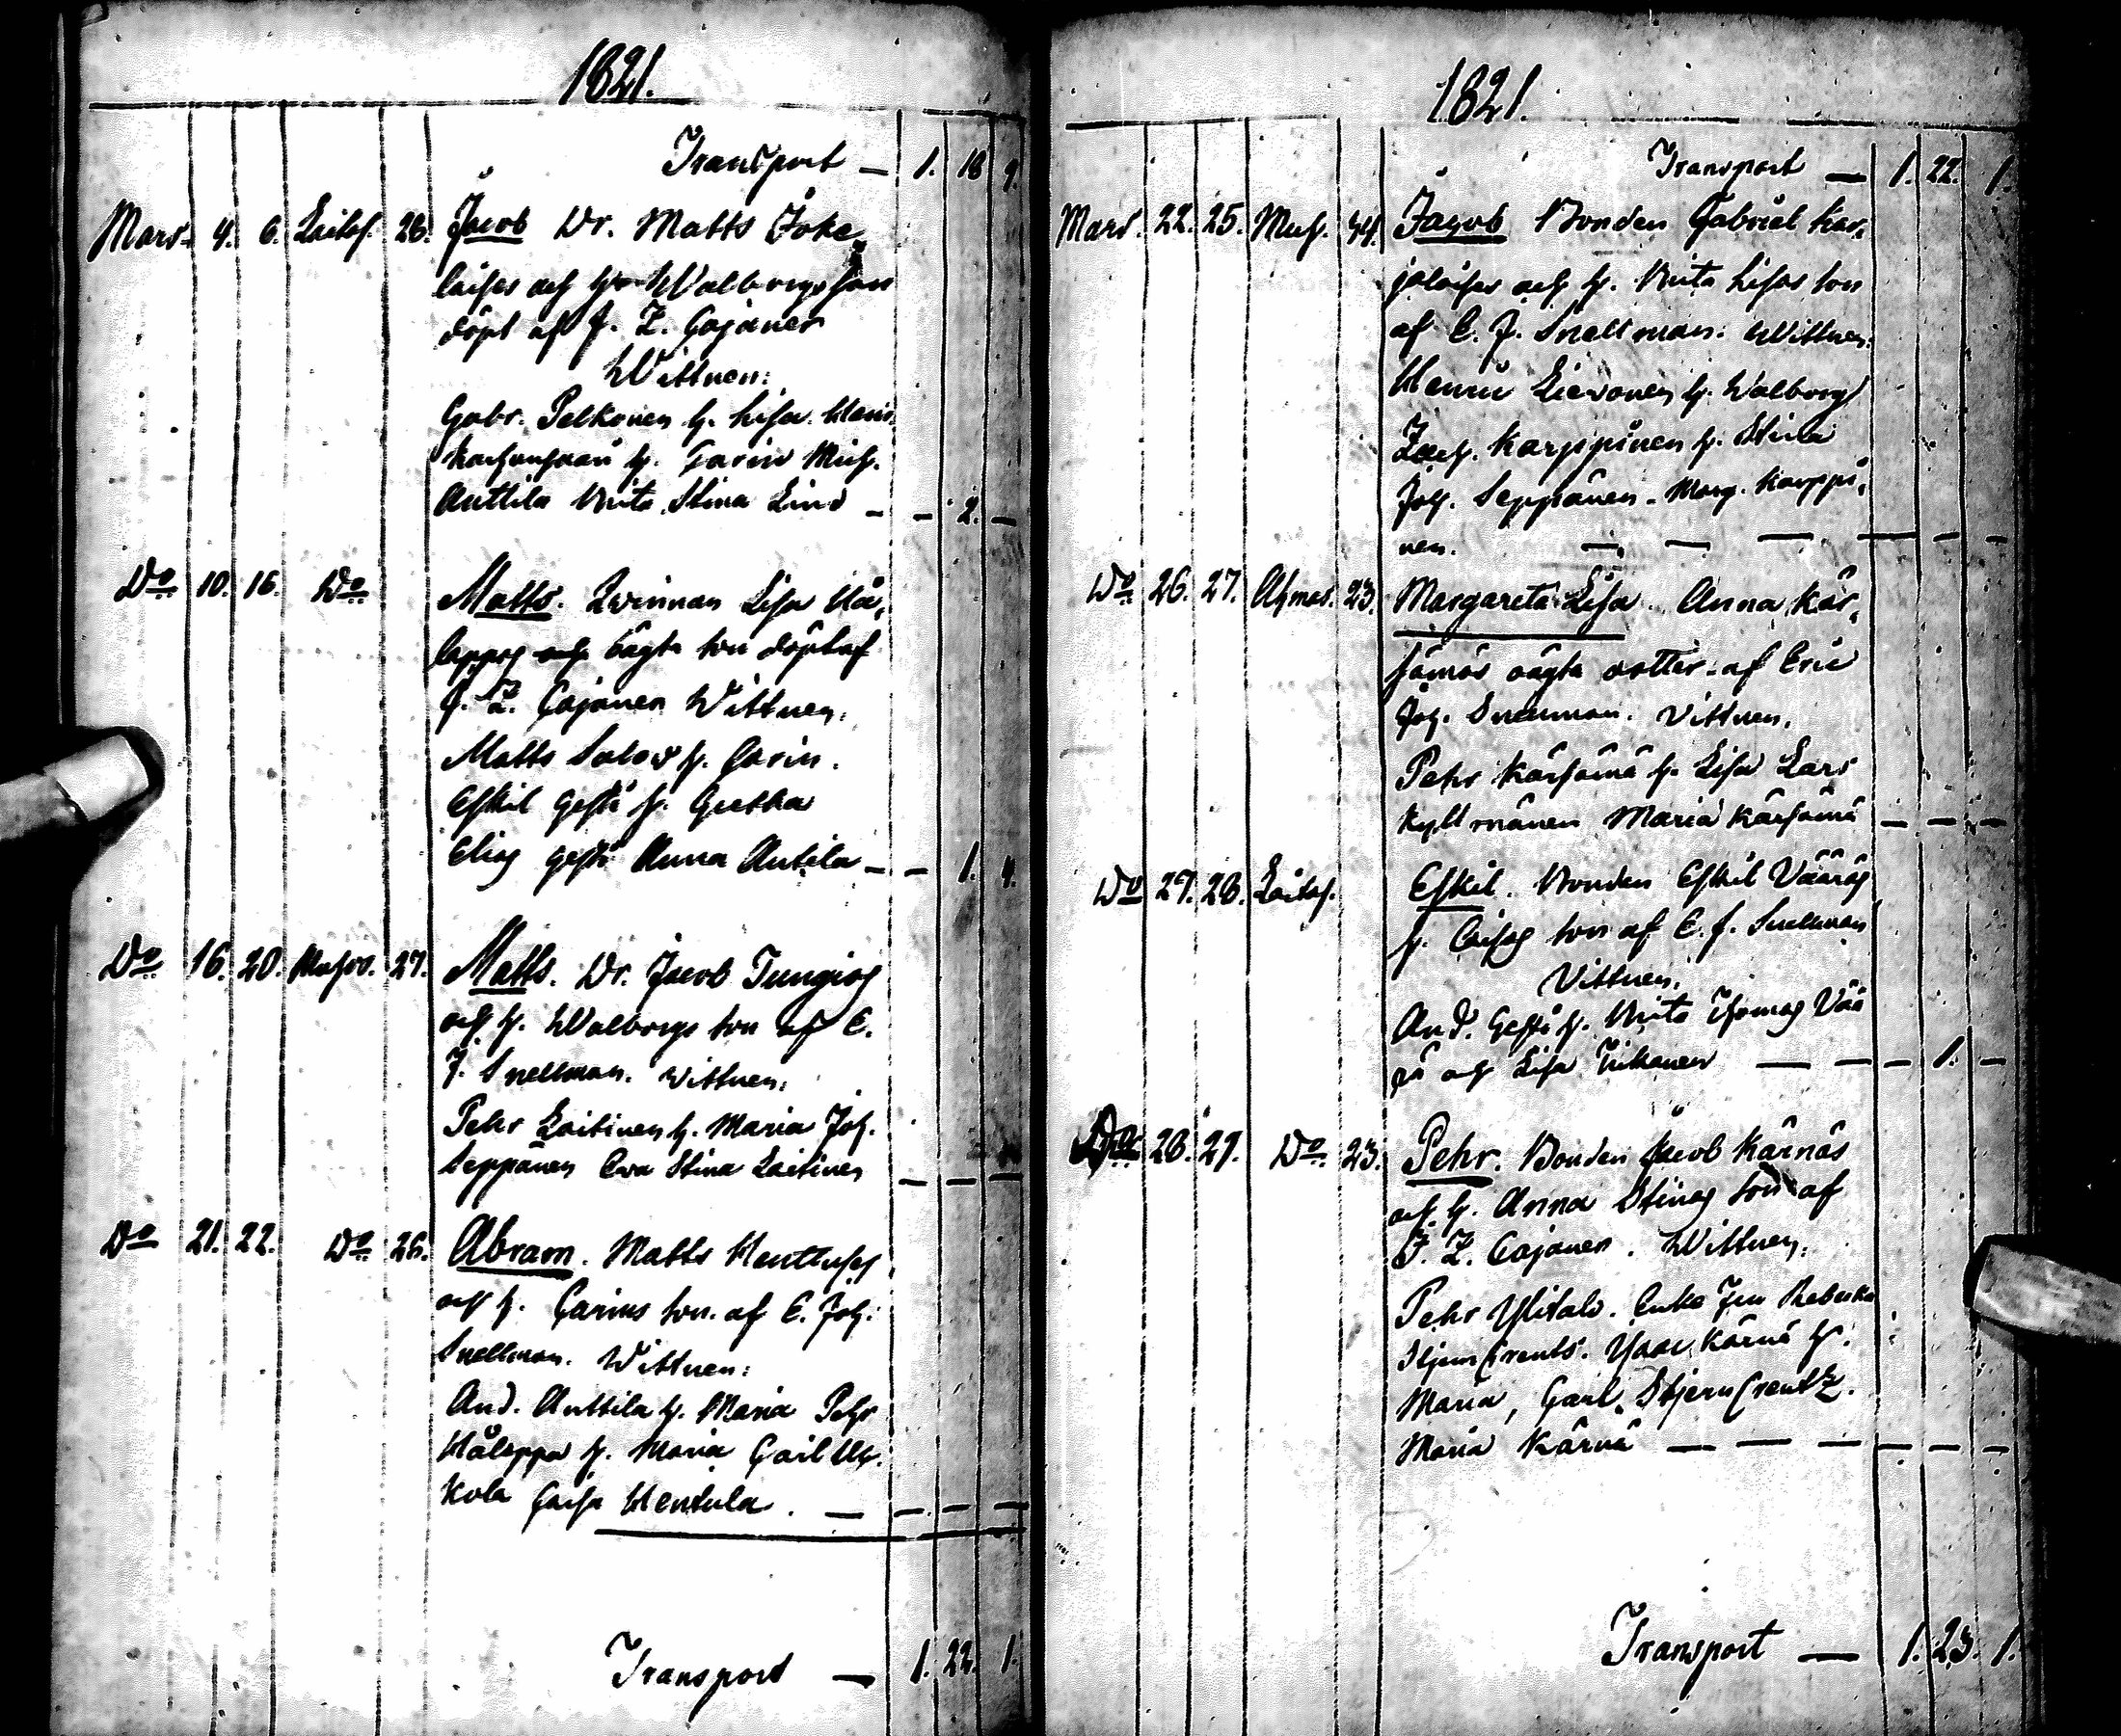 1821.
Transport — 1. 18 9.
Mars. 4. 6. Laitas. 28. Jacob Dr. Matts Joke-
laises och h. Walborgs son
döpt af J. Z. Cajanen
Wittnen:
Gabr. Pelkonen h. Lisa
h. Carin Mich.
Anttila Brita Stina Lind — — 2. —
Do 10. 16. Do Matts. Qvinnan Lisa Hå-
lappas oägta son döpt af
J. Z. Cajanen Wittnen,
Matts Salo h. Carin.
Eskil h. Gretha
Elias Anna Antila — — 1. 4.
Do 16. 20. 27. Matts. Dr. Jacob
och h. Walborgs son af E.
J. Snellman. Wittnen,
Pehr Laitinen h. Maria Joh.
Seppänen Eva Stina Laitinen — — —
Do 21. 22. Do 26. Abram. Matts
och h. Carins son. af E. Joh.
Snellman. Wittnen:
And. Anttila h. Maria Pehr
Hålappa h. Maria Carl
kola Caisa Hentula. — — — —
Transport — 1. 22. 1.
1821.
Transport — 1. 22. 1.
Mars. 22. 25. Muh. 44. Jacob Bonden Gabriel Kar-
jalaises och h. Brita Lisas son
af E. J. Snellman: Wittnen:
Henric Lievonen h. Walborg
Zach. Karppinen h. Stina
Joh. Seppänen. Marg. Karppi-
nen. — — — — — —
Do 26. 27. Ahmas. 23. Margareta Lisa. Anna Kär-
sämäs oägta dotter. af Eric
Joh. Snellman. Vittnen,
Pehr Kärsämä h. Lisa Lars
Kyllmänen Maria Kärsämä — — —
Do 27. 28. Laitas. Eskil. Bonden Eskil Vääräs
h. Caisas son af E. J. Snellman
Vittnen,
And. h. Brita Thomas Vää
rä och Lisa — — — 1. —
Do 28. 29. Do 23. Pehr. Bonden Jacob Kärnäs
och h. Anna Stinas son af
J. Z. Cajanen. Wittnen,
Pehr Ylitalo. Enka Fru Rebecka
Stjerncreutz. Isaac Kärnä h.
Maria, Carl. Stjerncreutz.
Maria Kärnä — — — — — —
Transport — 1. 23. 1.